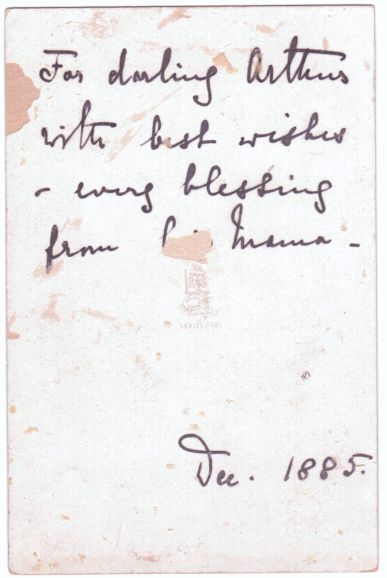 For darling Arthur
with best wishes
- every blessing
from his Mama -
Dec. 1885.